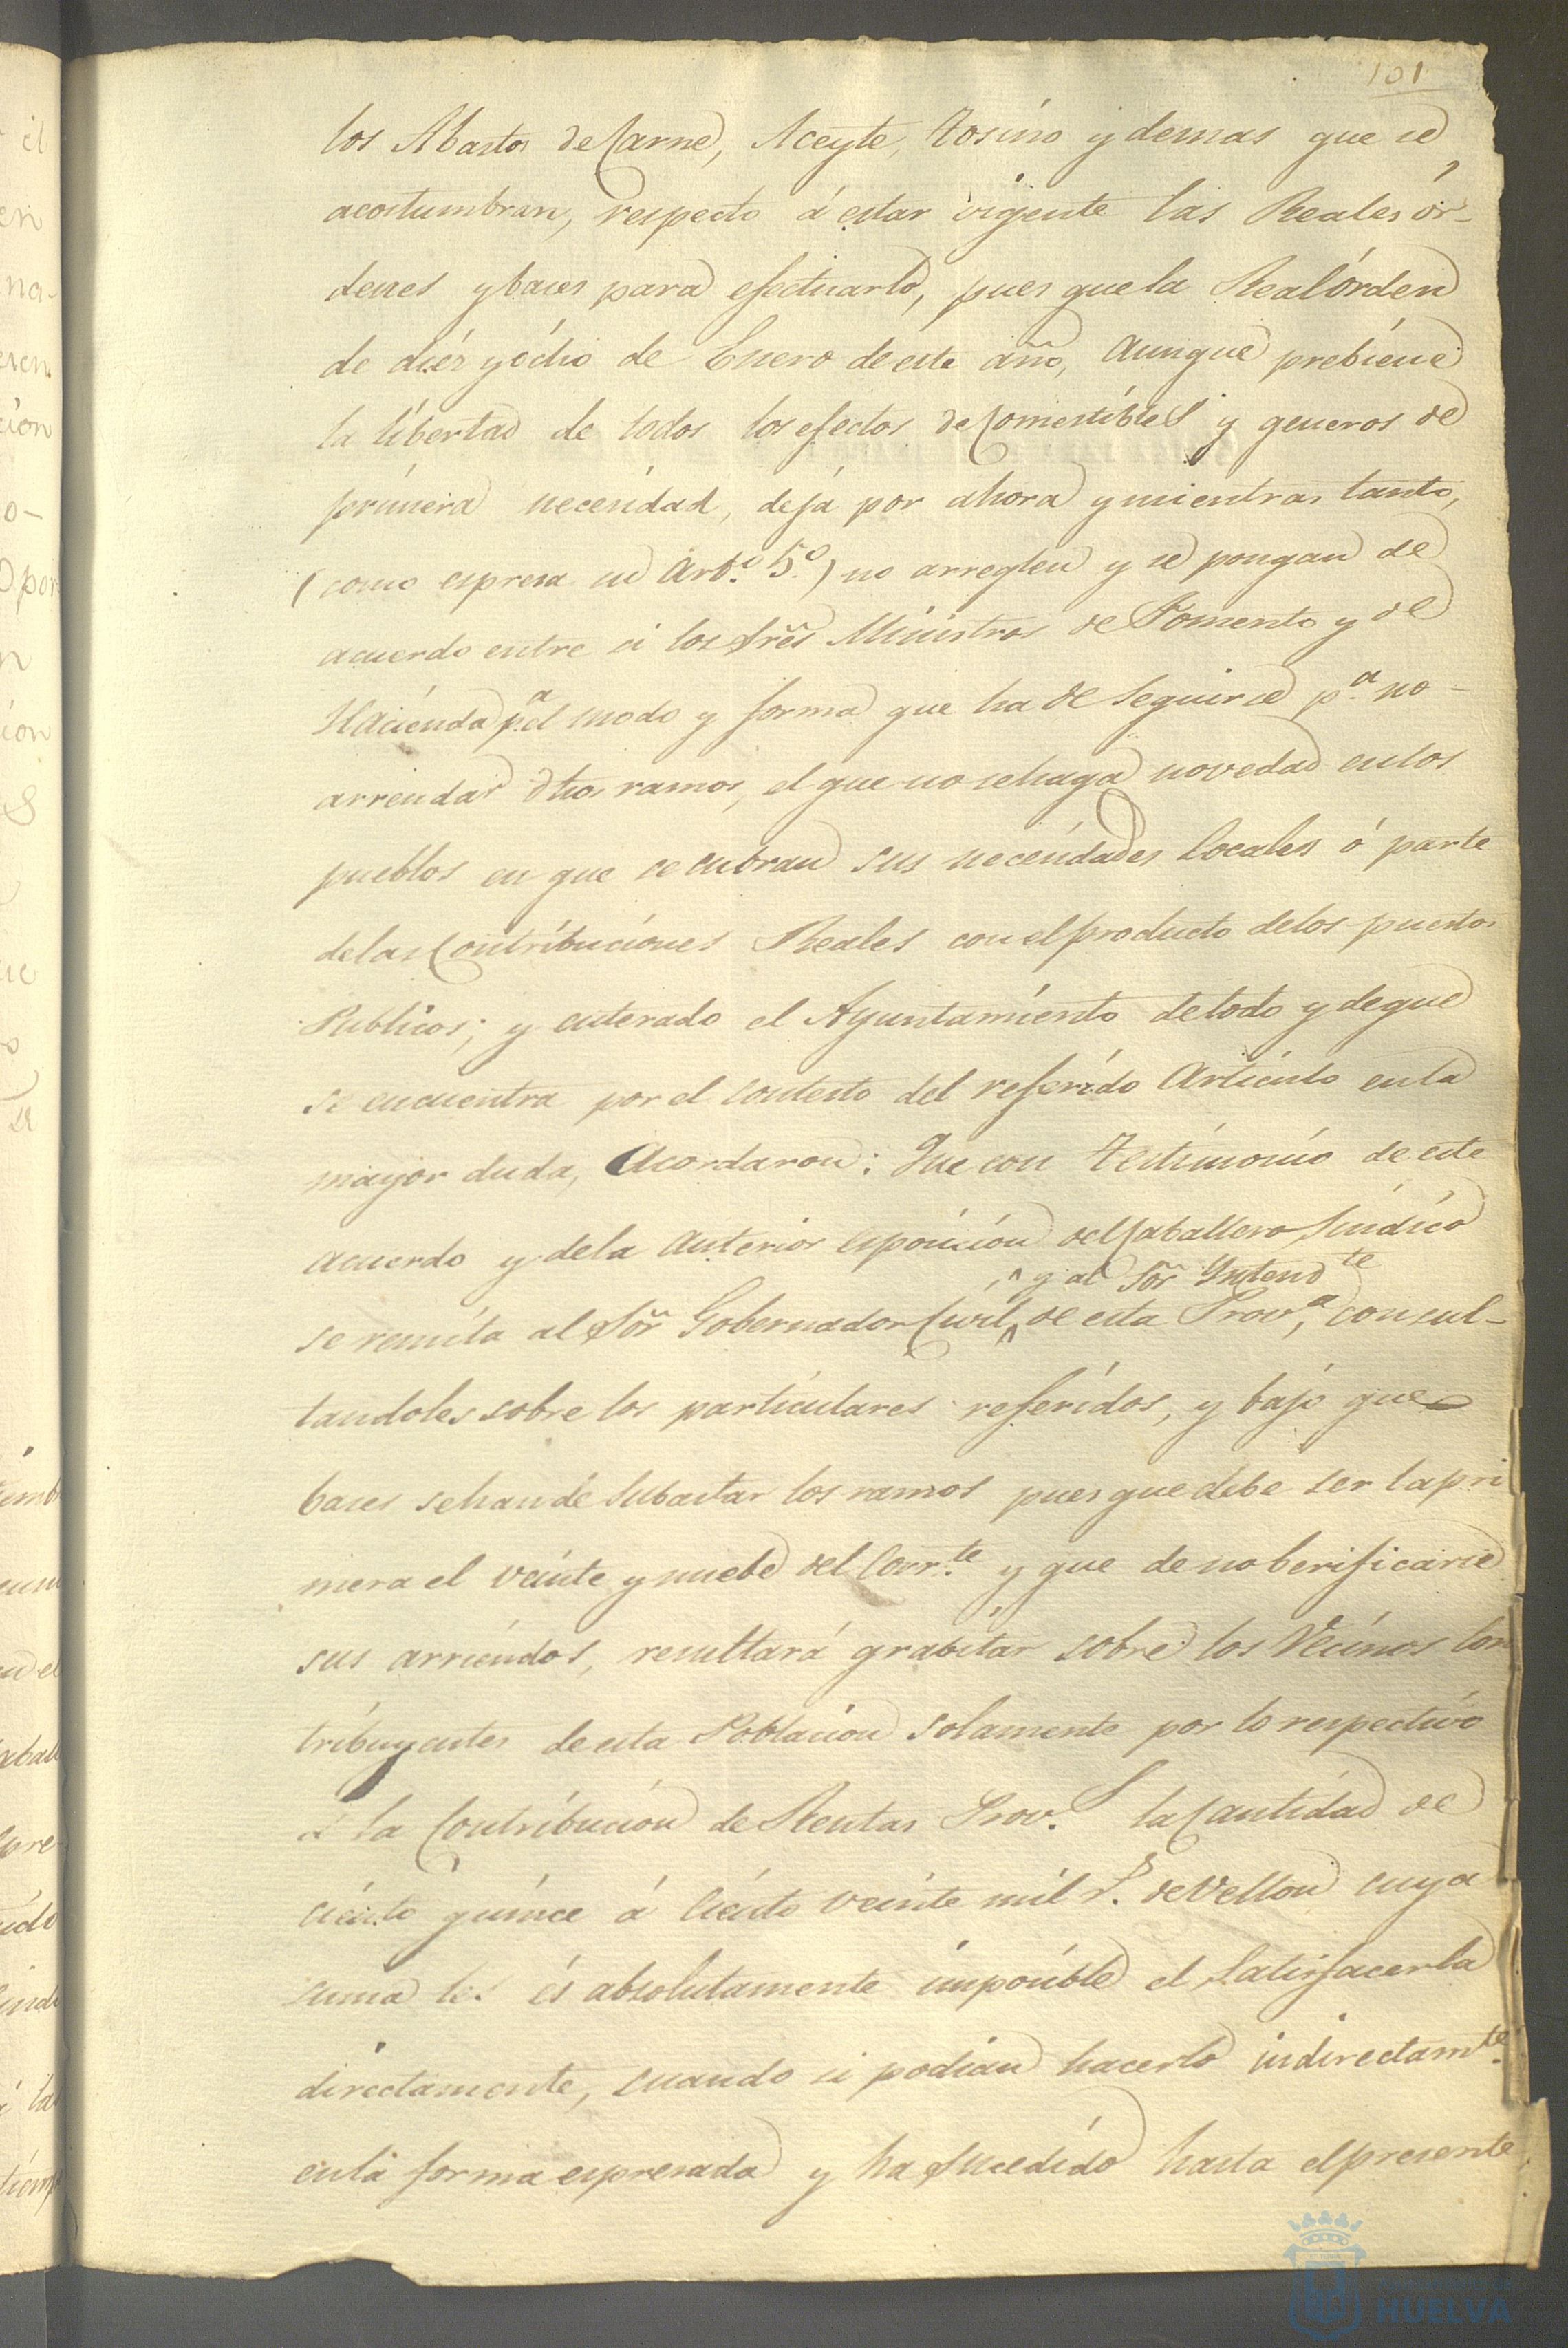 101
los Abastos de Carne, Aceyte, Tosino y demas que se
acostumbran, respecto á estar vigente las Reales ór-
denes y baces para efectuarlo, pues que la Real órden
de diéz y ócho de Enero de este año, aunque prebiene
la libertad de todos los efectos de Comestibles y generos de
primera necesidad, deja por ahora y mientras tanto,
(como espresa su Art.º 5º) no arreglen y se pongan de
acuerdo entre si los Sres Ministros de Fomento y de
Hacienda pª el modo y forma que ha de seguirse pª no
arrendar dhos ramos, el que no se haga novedad en los
pueblos en que se cubran sus necesidades locales ó parte
de las Contribuciones Reales con el producto de los puestos
Publicos; y enterado el Ayuntamiento de todo y de que
se encuentra por el contesto del referido Articulo en la
mayor duda, Acordaron: Que con Testimonio de este
acuerdo y de la anterior esposicion del Caballero Sindico
y al Sor Intendte
se remita al Sor Gobernador Civil de esta Provª, consul-
tandoles sobre los particulares referidos, y bajo que
baces se han de subastar los ramos pues que debe ser la pri
mera el veinte y nuebe del Corr.te y que de no berificarse
sus arriendos, resultará grabitar sobre los Vecinos Con
tribuyentes de esta Poblacion solamente por lo respectivo
á la Contribucion de Rentas Prov.s la Cantidad de
ciento quince á ciento veinte mil r.s de Vellon cuya
suma les és absolutamente imposible el satisfacerla
directamente, cuando si podian hacerlo indirectamte
en la forma espresada y ha sucedido hasta el presente
HUELVA